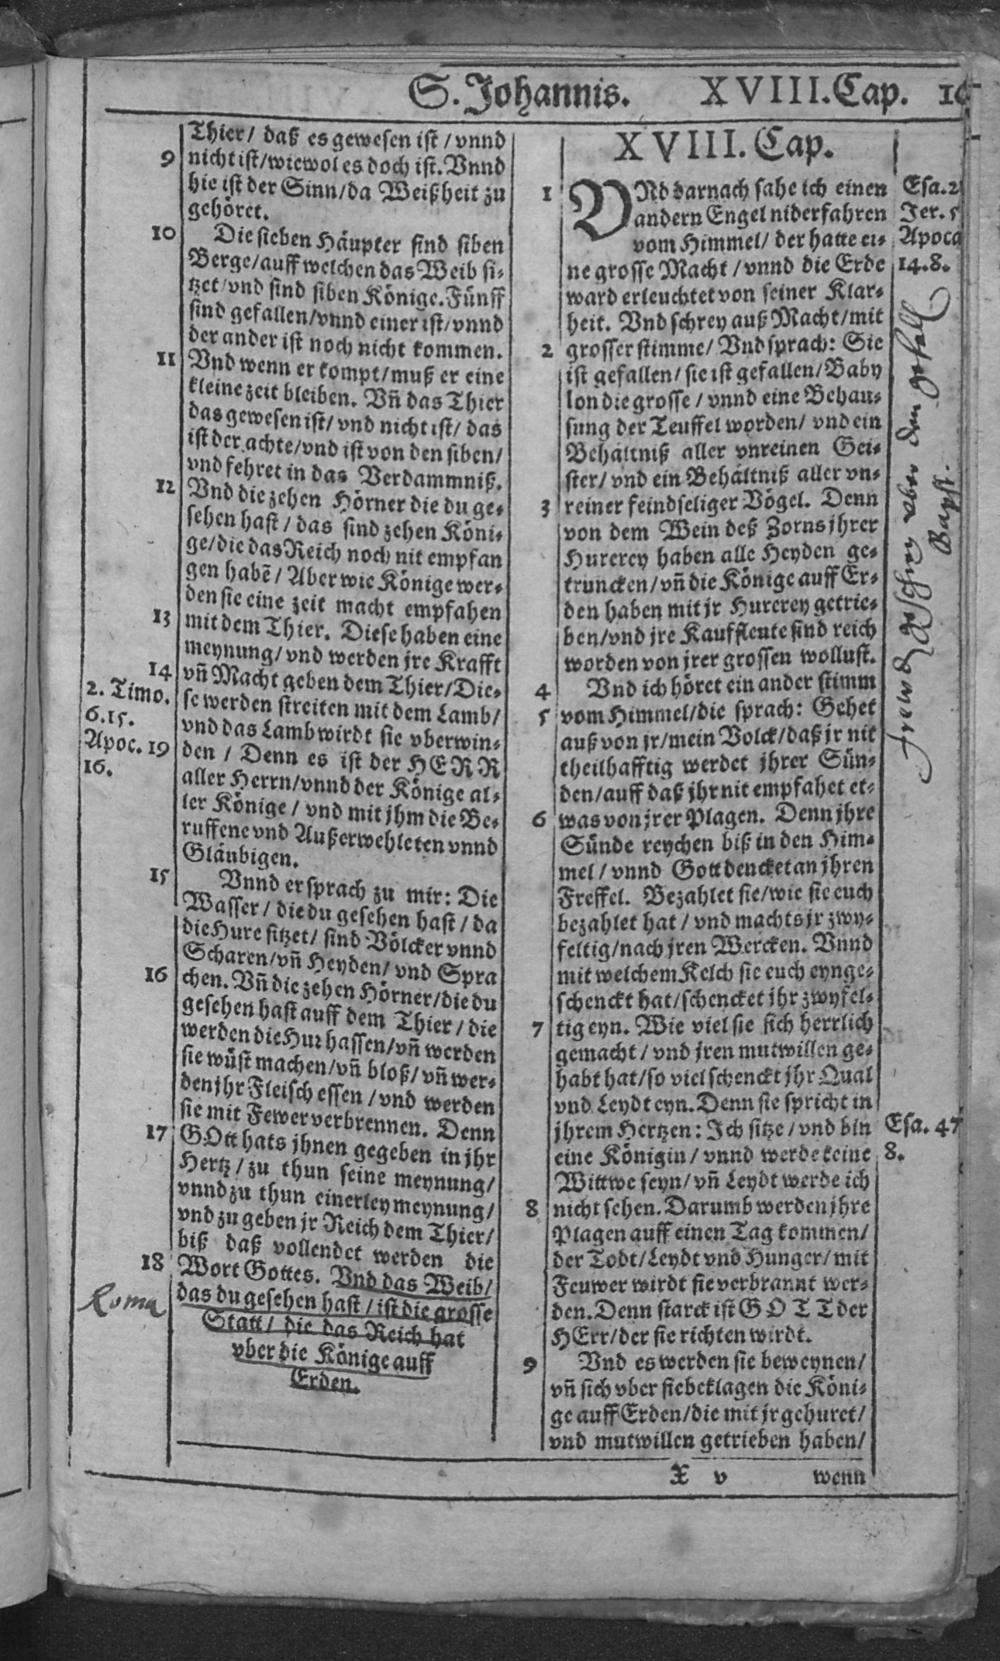 S. Johannis. XVIII. Cap.
Thier/ daß es gewesen ist/ vnnd
9 nicht ist/ wiewol es doch ist. Vnnd
hie ist der Sinn/ da Weißheit zu
gehöret.
10 Die sieben Häupter sind siben
Berge/ auff welchen das Weib si-
tzet/ vnd sind siben Könige. Fünff
sind gefallen/ vnnd einer ist/ vnnd
der ander ist noch nicht kommen.
11 Vnd wenn er kompt/ muß er eine
kleine zeit bleiben. Vñ das Thier
das gewesen ist/ vnd nicht ist/ das
ist der achte/ vnd ist von den siben/
vnd fehret in das Verdammniß.
12 Vnd die zehen Hörner die du ge-
sehen hast/ das sind zehen Köni-
ge/ die das Reich noch nit empfan
gen habẽ/ Aber wie Könige wer-
den sie eine zeit macht empfahen
13 mit dem Thier. Diese haben eine
meynung/ vnd werden jre Krafft
14 vñ Macht geben dem Thier/ Die-
2. Timo. se werden streiten mit dem Lamb/
6.15. vnd das Lamb wirdt sie vberwin-
Apoc. 19 den/ Denn es ist der HERR
16. aller Herrn/ vnnd der Könige al-
ler Könige/ vnd mit jhm die Be-
ruffene vnd Außerwehleten vnnd
Gläubigen.
15 Vnnd er sprach zu mir: Die
Wasser/ die du gesehen hast/ da
die Hure sitzet/ sind Völcker vnnd
Scharen/ vñ Heyden/ vnd Spra
16 chen. Vñ die zehen Hörner/ die du
gesehen hast auff dem Thier/ die
werden die Hur hassen/ vñ werden
sie wüst machen/ vñ bloß/ vñ wer-
den jhr Fleisch essen/ vnd werden
sie mit Fewer verbrennen. Denn
17 GOtt hats jhnen gegeben in jhr
Hertz/ zu thun seine meynung/
vnnd zu thun einerley meynung/
vnd zu geben jr Reich dem Thier/
biß daß vollendet werden die
18 Wort Gottes. Vnd das Weib/
Roma das du gesehen hast/ ist die grosse
Statt/ die das Reich hat
vber die Könige auff
Erden.
XVIII. Cap.
1 VNd darnach sahe ich einen Esa. 2
andern Engel niderfahren Jer. 5
vom Himmel/ der hatte ei- Apoca
ne grosse Macht/ vnnd die Erde 14.8.
ward erleuchtet von seiner Klar-
heit. Vnd schrey auß Macht/ mit
2 grosser stimme/ Vnd sprach: Sie
ist gefallen/ sie ist gefallen/ Baby
lon die grosse/ vnnd eine Behau-
sung der Teuffel worden/ vnd ein
Behältniß aller vnreinen Gei-
ster/ vnd ein Behältniß aller vn-
3 reiner feindseliger Vögel. Denn
von dem Wein deß Zorns jhrer
Hurerey haben alle Heyden ge-
truncken/ vñ die Könige auff Er-
den haben mit jr Hurerey getrie-
ben/ vnd jre Kauffleute sind reich
worden von jrer grossen wollust.
4 Vnd ich höret ein ander stimm
5 vom Himmel/ die sprach: Gehet
auß von jr/ mein Volck/ daß jr nit
theilhafftig werdet jhrer Sün-
den/ auff daß jhr nit empfahet et-
6 was von jrer Plagen. Denn jhre
Sünde reychen biß in den Him-
mel/ vnnd Gott dencket an jhren
Freffel. Bezahlet sie/ wie sie euch
bezahlet hat/ vnd machts jr zwy-
feltig/ nach jren Wercken. Vnnd
mit welchem Kelch sie euch eynge-
schenckt hat/ schencket jhr zwyfel-
7 tig eyn. Wie viel sie sich herrlich
gemacht/ vnd jren mutwillen ge-
habt hat/ so viel schenckt jhr Qual
vnd Leydt eyn. Denn sie spricht in
jhrem Hertzen: Ich sitze/ vnd bin Esa. 47
eine Königin/ vnnd werde keine 8.
Wittwe seyn/ vñ Leydt werde ich
8 nicht sehen. Darumb werden jhre
Plagen auff einen Tag kommen/
der Todt/ Leydt vnd Hunger/ mit
Feuwer wirdt sie verbrannt wer-
den. Denn starck ist GOTT der
HErr/ der sie richten wirdt.
9 Vnd es werden sie beweynen/
vñ sich vber sie beklagen die Köni-
ge auff Erden/ die mit jr gehuret/
vnd mutwillen getrieben haben/
X v wenn
geschrey vber den gefall
Bapst.